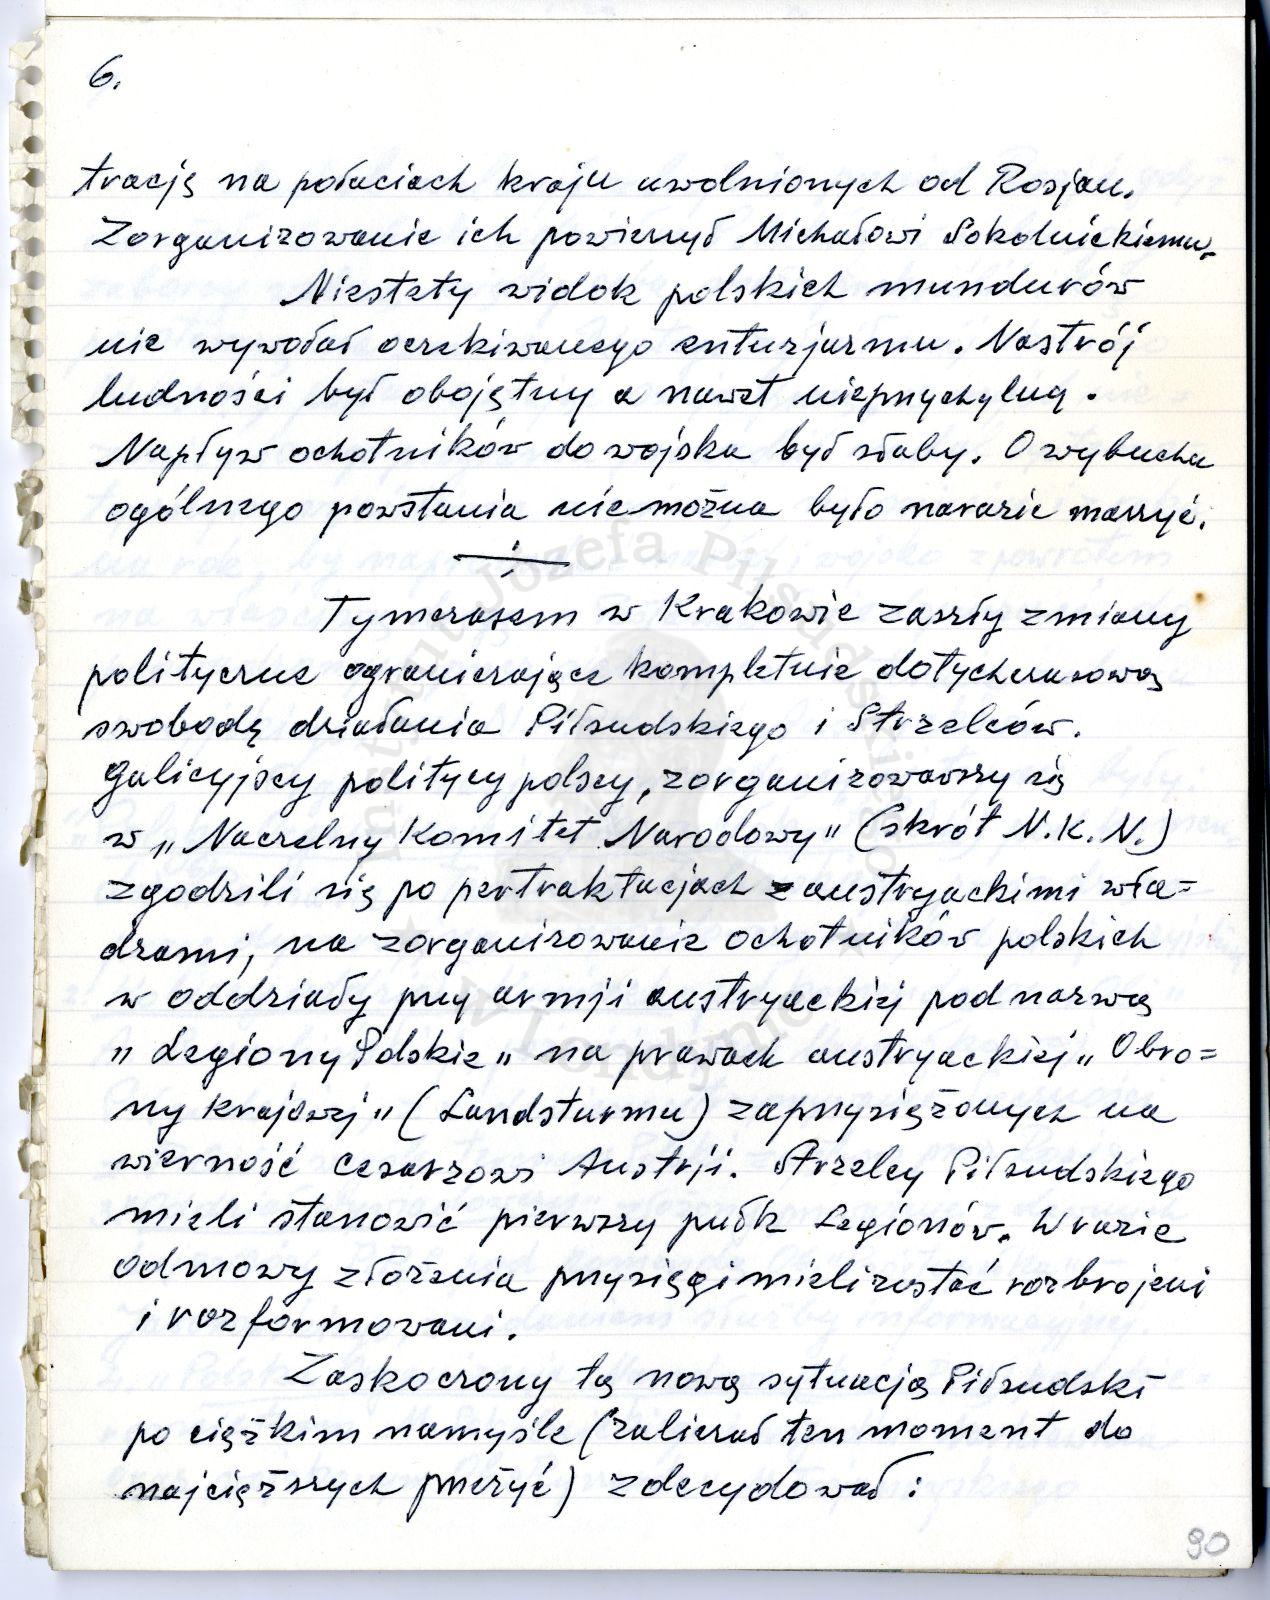 6.
tracją na połaciach kraju uwolnionych od Rosjan.
Zorganizowanie ich powierzył Michałowi Sokolnickiemu.
Niestety widok polskich mundurów
nie wywołał oczekiwanego entuzjazmu. Nastrój
ludności był obojętny a nawet nieprzychylny.
Napływ ochotników do wojska był słaby. O wybuchu
ogólnego powstania nie można było narazie marzyć.
÷
Tymczasem w Krakowie zaszły zmiany
polityczne ograniczające kompletnie dotychczasową
swobodę działania Piłsudskiego i Strzelców.
Galicyjscy politycy polscy, zorganizowawszy się
w „Naczelny Komitet Narodowy" (skrót N.K.N.)
zgodzili się po pertraktacjach z austryackimi wła=
dzami, na zorganizowanie ochotników polskich
w oddziały przy armji austryackiej pod nazwą
„Legiony Polskie" na prawach austryackiej „Obro=
ny krajowej" (Landsturmu) zaprzysiężonych na
wierność cesarzowi Austrji. Strzelcy Piłsudskiego
mieli stanowić pierwszy pułk Legionów. W razie
odmowy złożenia przysięgi mieli zostać rozbrojeni
i rozformowani.
Zaskoczony tą nową sytuacją Piłsudski
po ciężkim namyśle (zaliczał ten moment do
najcięższych przeżyć) zdecydował:
90
Instytut Józefa Piłsudskiego
w Londynie